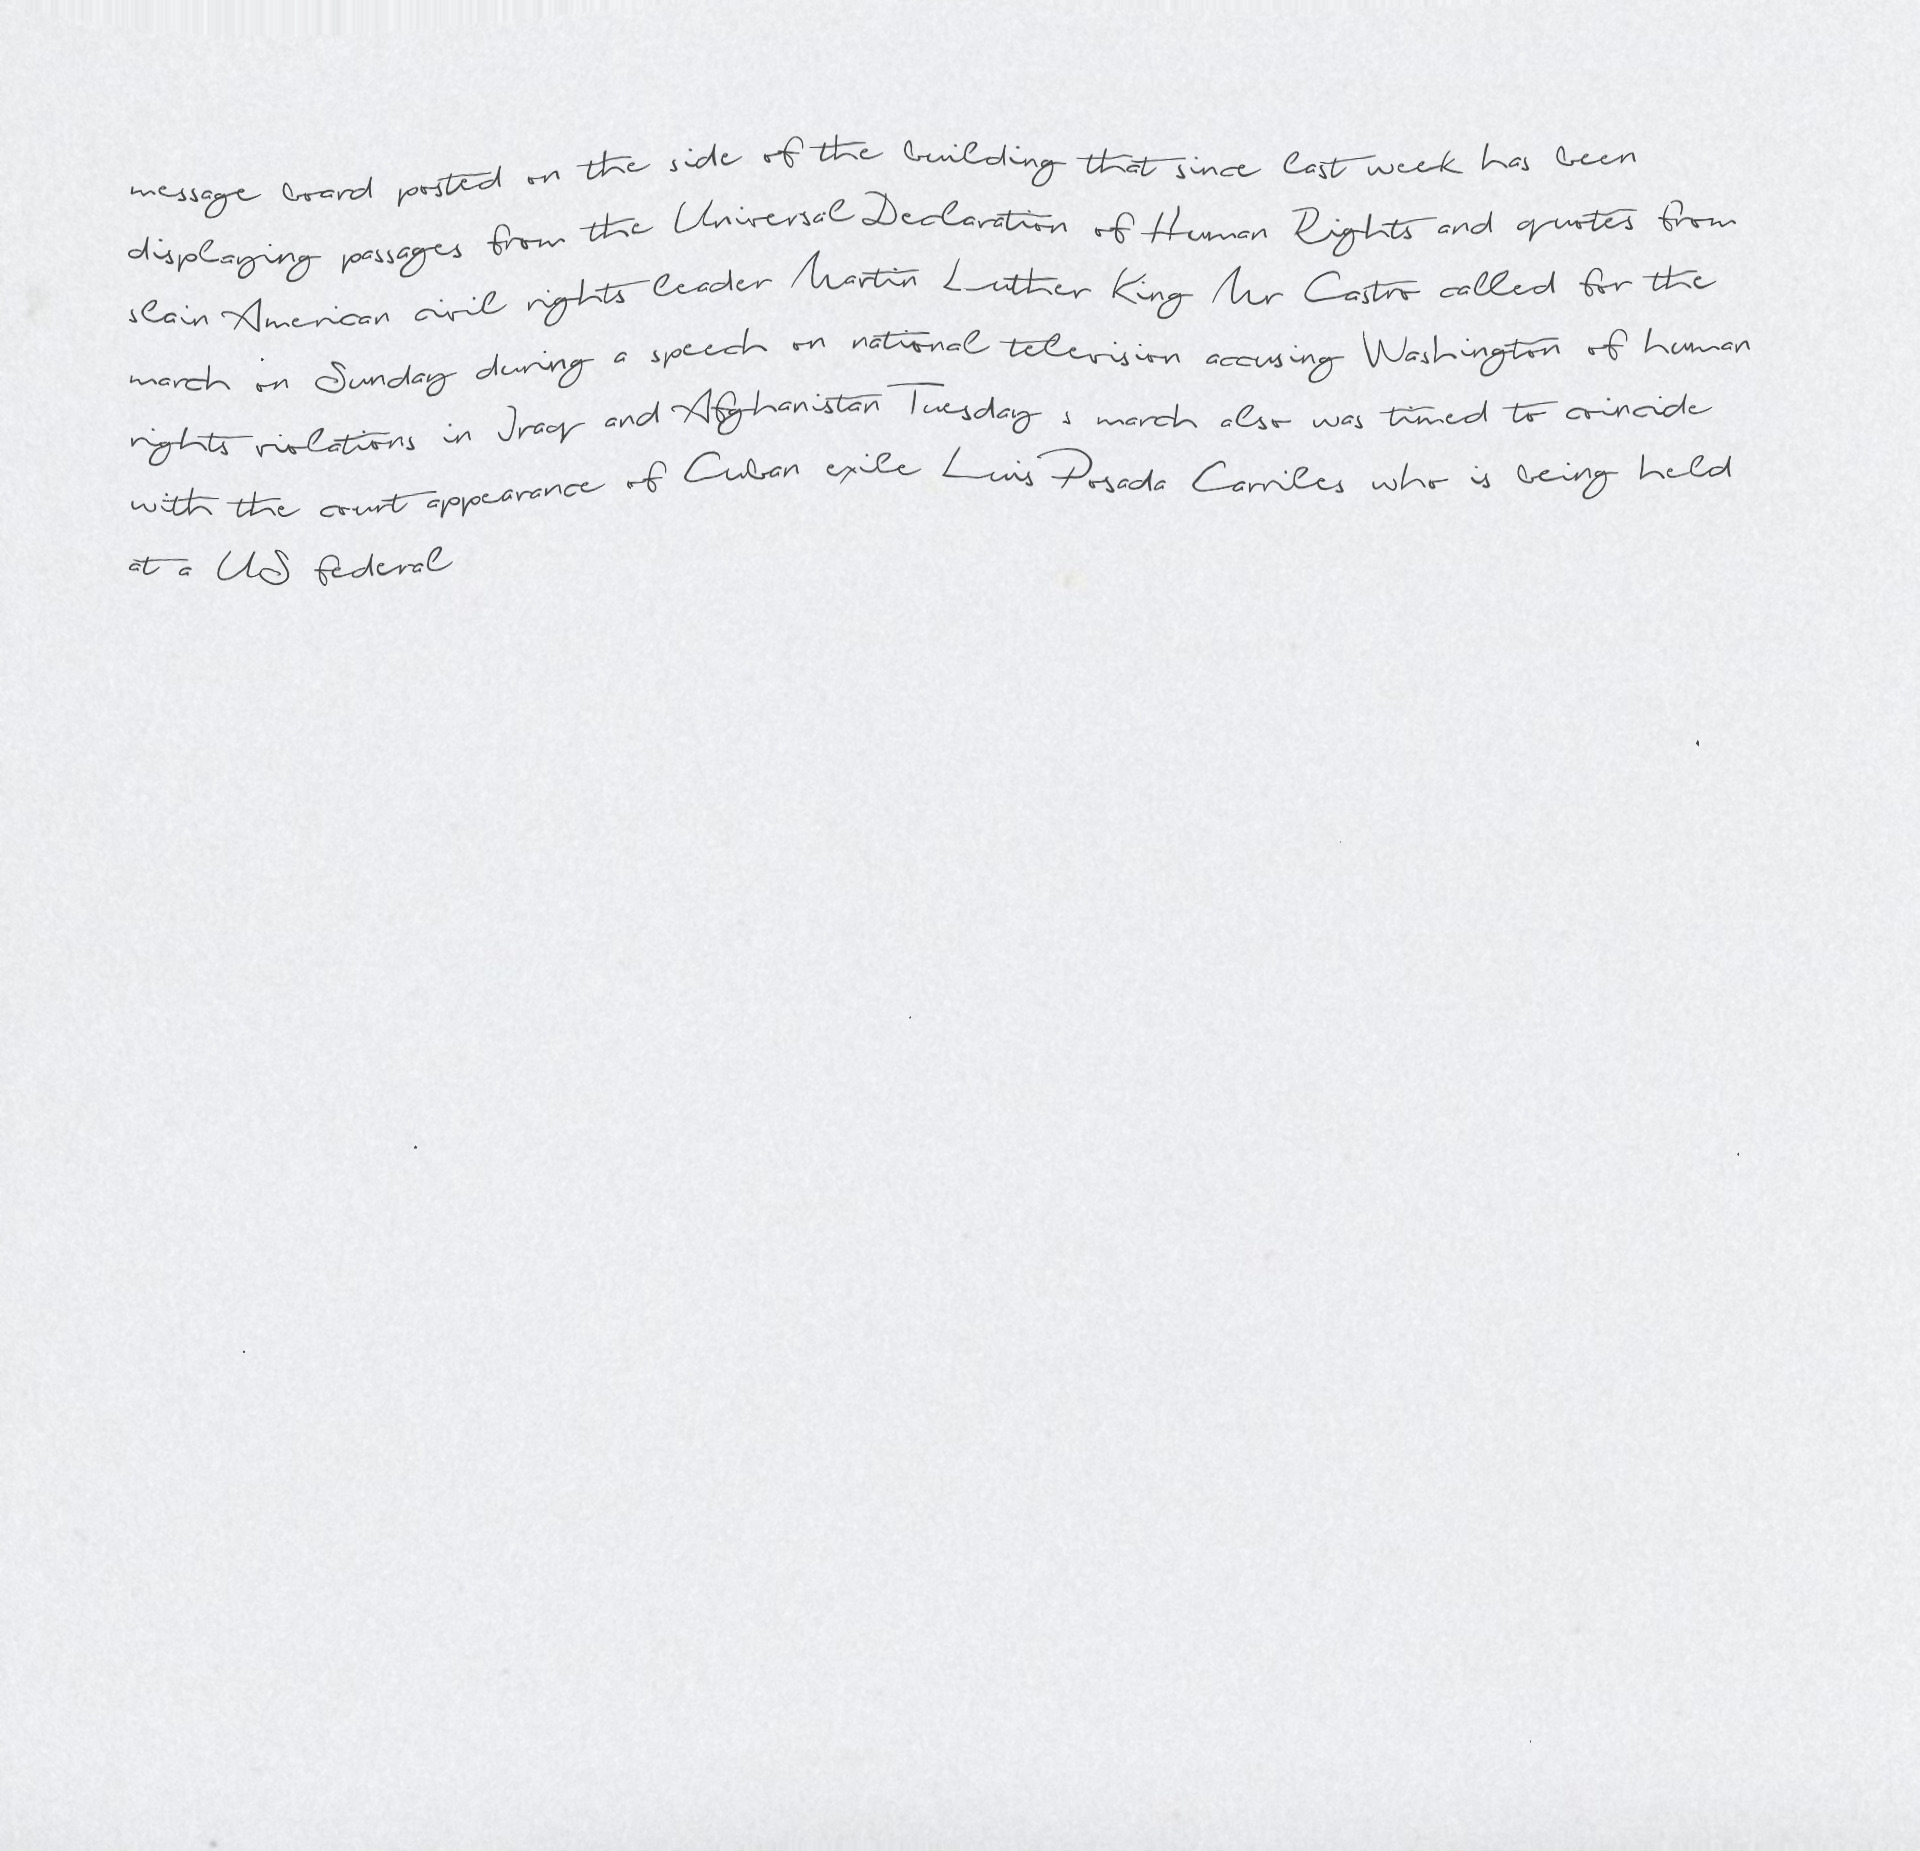 message board posted on the side of the building that since last week has been
displaying passages from the Universal Declaration of Human Rights and quotes from
slain American civil rights leader Martin Luther King Mr Castro called for the
march on Sunday during a speech on national television accusing Washington of human
rights violations in Iraq and Afghanistan Tuesday s march also was timed to coincide
with the court appearance of Cuban exile Luis Posada Carriles who is being held
at a US federal